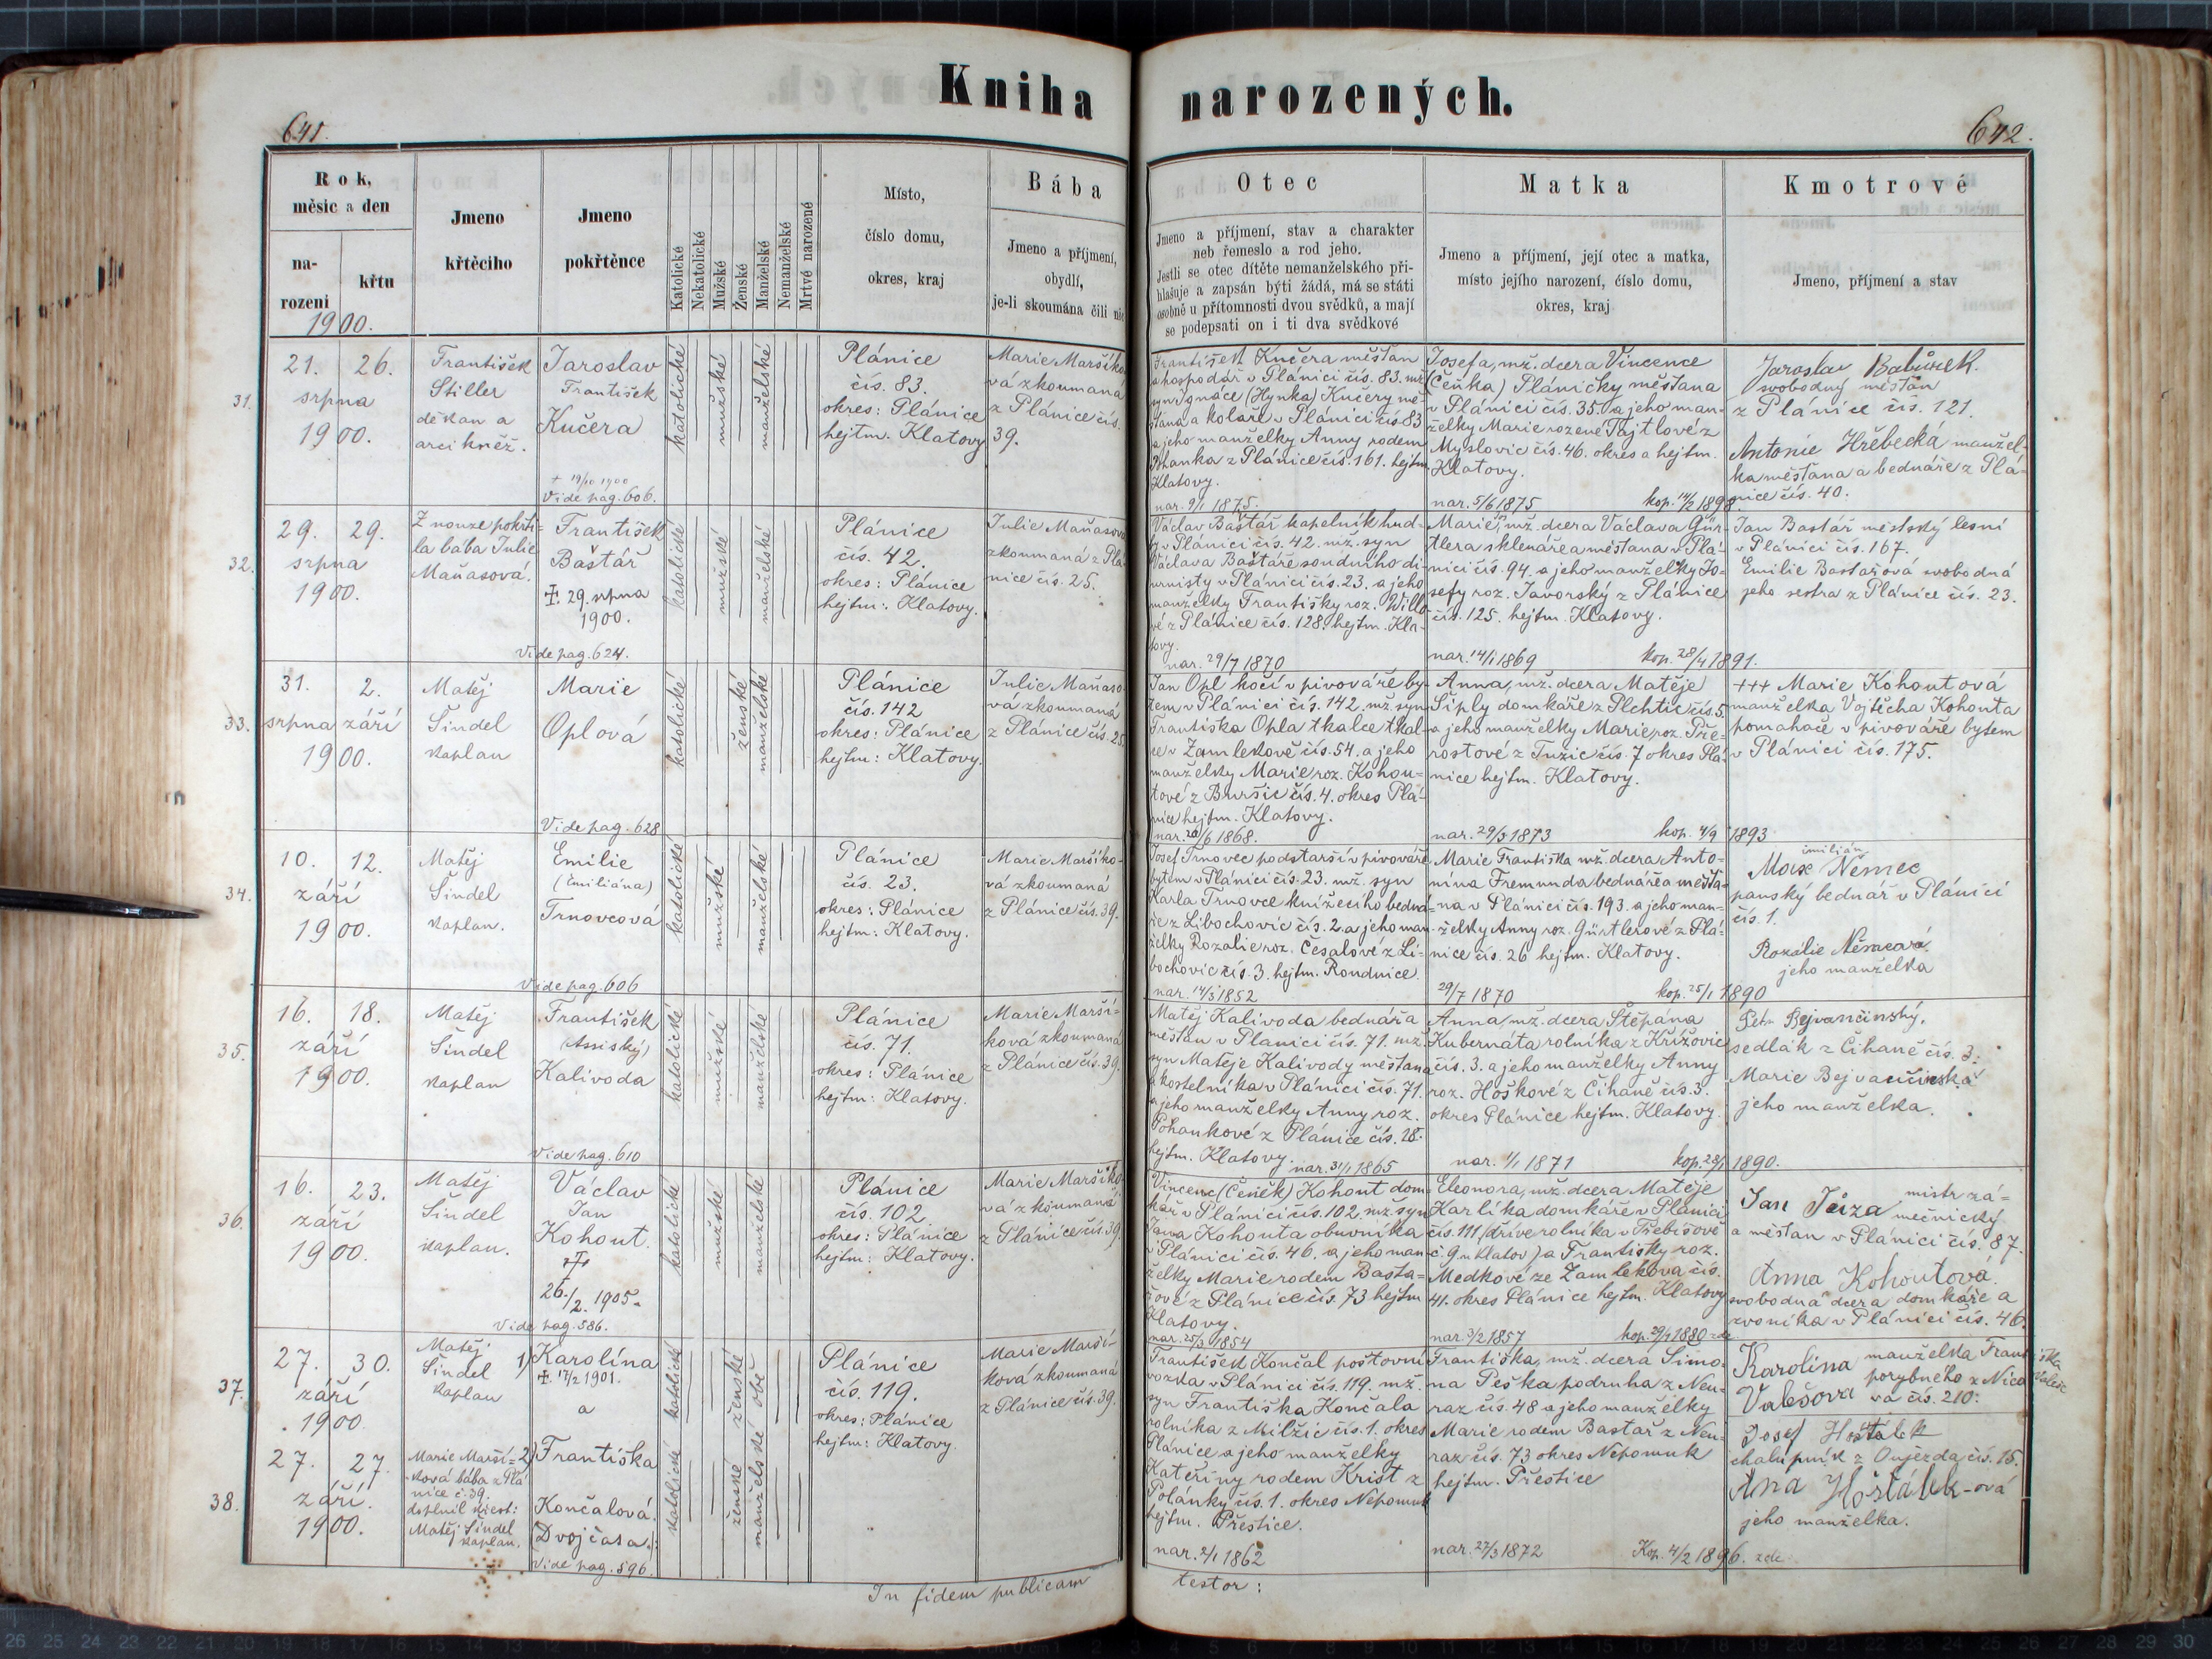 Kniha narozených.
641.
642.
Rok,
měsíc a den
na-
rození
křtu
1900.
Jmeno
křtěcího
Jmeno
pokřtěnce
Katolické
Nekatolické
Mužské
Ženské
Manželské
Nemanželské
Mrtvé narozené
Místo,
číslo domu,
okres, kraj
Bába
Jmeno a příjmení,
obydlí,
je-li skoumána čili nic
Otec
Jmeno a příjmení, stav a charakter
neb řemeslo a rod jeho.
Jestli se otec dítěte nemanželského při-
hlašuje a zapsán býti žádá, má se státi
osobně u přítomnosti dvou svědků, a mají
se podepsati on i ti dva svědkové
Matka
Jmeno a příjmení, její otec a matka,
místo jejího narození, číslo domu,
okres, kraj
Kmotrové
Jmeno, příjmení a stav
31.
21. 26.
srpna
1900.
František
Stiller
děkan a
arcikněž.
Jaroslav
František
Kučera
+ 19/10 1900
Vide pag. 606.
katolické
mužské
manželské
Plánice
čís. 83.
okres: Plánice
hejtm. Klatovy
Marie Maršíko-
vá zkoumaná
z Plánice čís.
39.
František Kučera měšťan
a hospodář v Plánici čís. 83. mž.
syn Ignáce (Hynka) Kučery mě-
šťana a koláře v Plánici čís 83
a jeho manželky Anny rodem
Pohanka z Plánice čís. 161. hejtm
Klatovy.
nar. 9/1 1875.
Josefa, mž. dcera Vincence
(Čeňka) Pláničky měšťana
v Plánici čís. 35. a jeho man-
želky Marie rozené Tajtlové z
Myslovic čís. 46. okres a hejtm.
Klatovy.
nar. 5/6 1875 kop. 14/2 1898.
Jaroslav Babůrek.
svobodný měšťan
z Plánice čís. 121.
Antonie Hřebecká manžel-
ka měšťana a bednáře z Plá-
nice čís. 40.
32.
29. 29.
srpna
1900.
Z nouze pokřti-
la bába Julie
Maňasová.
František
Baštář
+. 29. srpna
1900.
Vide pag. 624.
katolické
mužské
manželské
Plánice
čís. 42.
okres: Plánice
hejtm: Klatovy.
Julie Maňasová
zkoumaná z Plá-
nice čís. 25.
Václav Baštář kapelník hud-
by v Plánici čís. 42. mž. syn
Václava Baštáře soudního di-
urnisty v Plánici čís. 23. a jeho
manželky Františky roz. Willo-
vé z Plánice čís. 128. hejtm. Kla-
tovy.
nar. 29/7 1870
Marie, mž. dcera Václava Gür-
tlera sklenáře a měšťana v Plá-
nici čís. 94. a jeho manželky Jo-
sefy roz. Javorský z Plánice
čís. 125. hejtm. Klatovy.
nar. 14/1 1869 kop. 28/4 1891.
Jan Bastář městský lesní
v Plánici čís. 167.
Emilie Bastářová svobodná
jeho sestra z Plánice čís. 23.
33.
31. 2.
srpna září
1900.
Matěj
Šindel
kaplan
Marie
Oplová
Vide pag. 628
katolické
ženské
manželské
Plánice
čís. 142
okres: Plánice
hejtm: Klatovy.
Julie Maňaso-
vá zkoumaná
z Plánice čís. 25.
Jan Opl kočí v pivováře by-
tem v Plánici čís. 142. mž. syn
Františka Opla tkalce tkal-
ce v Zamlekově čís. 54. a jeho
manželky Marie roz. Kohou-
tové z Buršic čís. 4. okres Plá-
nice hejtm. Klatovy.
nar. 20/6 1868.
Anna, mž. dcera Matěje
Šiply domkáře z Plchtic čís. 5.
a jeho manželky Marie roz. Pře-
rostové z Tužic čís. 7 okres Plá-
nice hejtm. Klatovy.
nar. 29/3 1873 kop. 4/9 1893
+++ Marie Kohoutová
manželka Vojtěcha Kohouta
pomahače v pivováře bytem
v Plánici čís. 175.
34.
10. 12.
září
1900.
Matěj
Šindel
kaplan.
Emilie
(Emiliána)
Trnovcová
Vide pag. 606
katolické
mužské
manželské
Plánice
čís. 23.
okres: Plánice
hejtm: Klatovy.
Marie Maršíko-
vá zkoumaná
z Plánice čís. 39.
Josef Trnovec podstarší v pivováře
bytem v Plánici čís. 23. mž. syn
Karla Trnovce knížecího bedná-
ře z Libochovic čís. 2. a jeho man-
želky Rozalie roz. Česalové z Li-
bochovic čís. 3. hejtm. Roudnice.
nar. 14/3 1852
Marie Františka mž. dcera Anto-
nína Fremunda bednáře a měšťa-
na v Plánici čís. 193. a jeho man-
želky Anny roz. Gürtlerové z Plá-
nice čís. 26 hejtm. Klatovy.
29/7 1870 kop. 25/1 1890
emilián
Max Němec
panský bednář v Plánici
čís. 1.
Rozálie Němcová
jeho manželka
35.
16. 18.
září
1900.
Matěj
Šindel
kaplan
František
(Assiský)
Kalivoda
Vide pag. 610
katolické
mužské
manželské
Plánice
čís. 71.
okres: Plánice
hejtm: Klatovy.
Marie Marší-
ková zkoumaná
z Plánice čís. 39.
Matěj Kalivoda bednář a
měšťan v Plánici čís. 71. mž.
syn Matěje Kalivody měšťana
a kostelníka v Plánici čís. 71.
a jeho manželky Anny roz.
Pohankové z Plánice čís. 18.
hejtm. Klatovy. nar. 31/1 1865
Anna, mž. dcera Štěpána
Kubernáta rolníka z Křížovic
čís. 3. a jeho manželky Anny
roz. Hoškové z Číhaně čís. 3.
okres Plánice hejtm. Klatovy.
nar. 1/1 1871 kop. 28/1 1890.
Petr Bejvančinský,
sedlák z Číhaně čís. 3.
Marie Bejvančinská
jeho manželka.
36.
16. 23.
září
1900.
Matěj
Šindel
kaplan.
Václav
Jan
Kohout.
+
26./2. 1905.
Vide pag. 586.
katolické
mužské
manželské
Plánice
čís. 102
okres: Plánice
hejtm: Klatovy.
Marie Maršíko-
vá zkoumaná
z Plánice čís. 39.
Vincenc (Čeněk) Kohout dom-
kář v Plánici čís. 102. mž. syn
Jana Kohouta obuvníka
v Plánici čís. 46. a jeho man-
želky Marie rodem Basta-
řové z Plánice čís. 73 hejtm
Klatovy.
nar. 25/3 1854
Eleonora, mž. dcera Matěje
Karlíka domkáře v Plánici
čís. 111 (dříve rolníka v Třebíšově
č. 9. u Klatov) a Františky roz.
Medkové ze Zamlekova čís.
41. okres Plánice hejtm. Klatovy
nar. 3/2 1857 kop. 29/9 1880 zde
Jan Jůza mistr zá-
mečnický
a měšťan v Plánici čís. 87.
Anna Kohoutová.
svobodná dcera domkáře a
zvoníka v Plánici čís. 46.
37.
27. 30.
září
1900
Matěj
Šindel
kaplan
1) Karolína
+. 17/2 1901.
a
katolické
ženské
Plánice
čís. 119.
okres: Plánice
hejtm: Klatovy.
Marie Marší-
ková zkoumaná
z Plánice čís. 39.
38.
27. 27.
září.
1900.
Marie Marší-
ková bába z Plá
nice č. 39.
doplnil kněz:
Matěj Šindel
kaplan.
2) Františka
Končalová.
(Dvojčata.)
Vide pag. 596.
katolické
ženské
manželské obě
František Končal poštovní
vozka v Plánici čís. 119. mž.
syn Františka Končala
rolníka z Milžic čís. 1. okres
Plánice a jeho manželky
Kateřiny rodem Krist z
Polánky čís. 1. okres Nepomuk
hejtm. Přestice.
nar. 2/1 1862
Františka, mž. dcera Šimo-
na Peška podruha z Neu-
raz čís. 48 a jeho manželky
Marie rodem Bastař z Neu-
raz čís. 73 okres Nepomuk
hejtm. Přestice
nar. 27/3 1872 Kop. 4/2 1896. zde
Karolina manželka Frant-iška
Valešova porybného z Nico
va čís. 210.
Josef Hošťálek
chalupník z Oujezda čís. 15.
Ana Hošťálek-ová
jeho manželka.
In fidem publicam
testor: